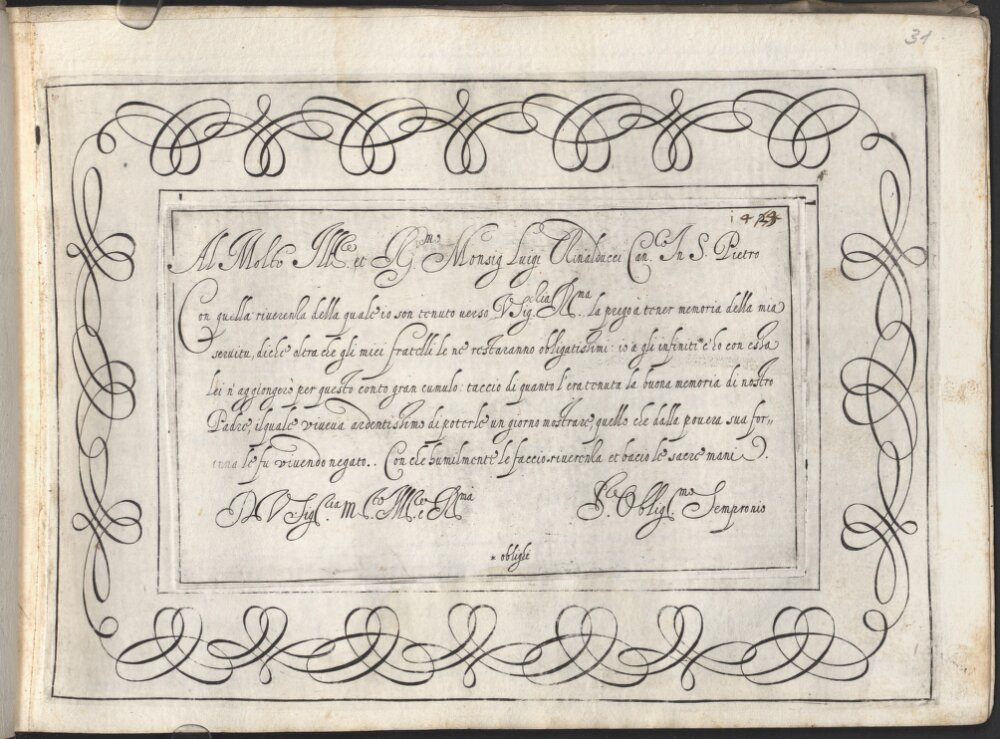 31
Al Molto Ill.re et R.mo Monsig Luigi Rinalducci Can.co In S. Pietro
Con quella riuerenza della quale io son tenuto uerso V. Sig.lia R.ma la prego à tener memoria della mia
seruitu, di che oltra che gli miei fratelli le ne restaranno obligatissimi: io a gli infiniti * c'ho con essa
lei n'aggiongerò per questo conto gran cumulo: taccio di quanto l'era tenuta la buona memoria di nostro
Padre, il quale viueua ardentissimo di poterle un giorno mostrare, quello che dalla pouera sua for,,
tuna le fu viuendo negato. . Con che humilmente le faccio riuerenza et bacio le sacre mani D.
D. V. Sig.lia m.to Ill.re e R.ma
S.re Oblig.mo Sempronio
* oblighi